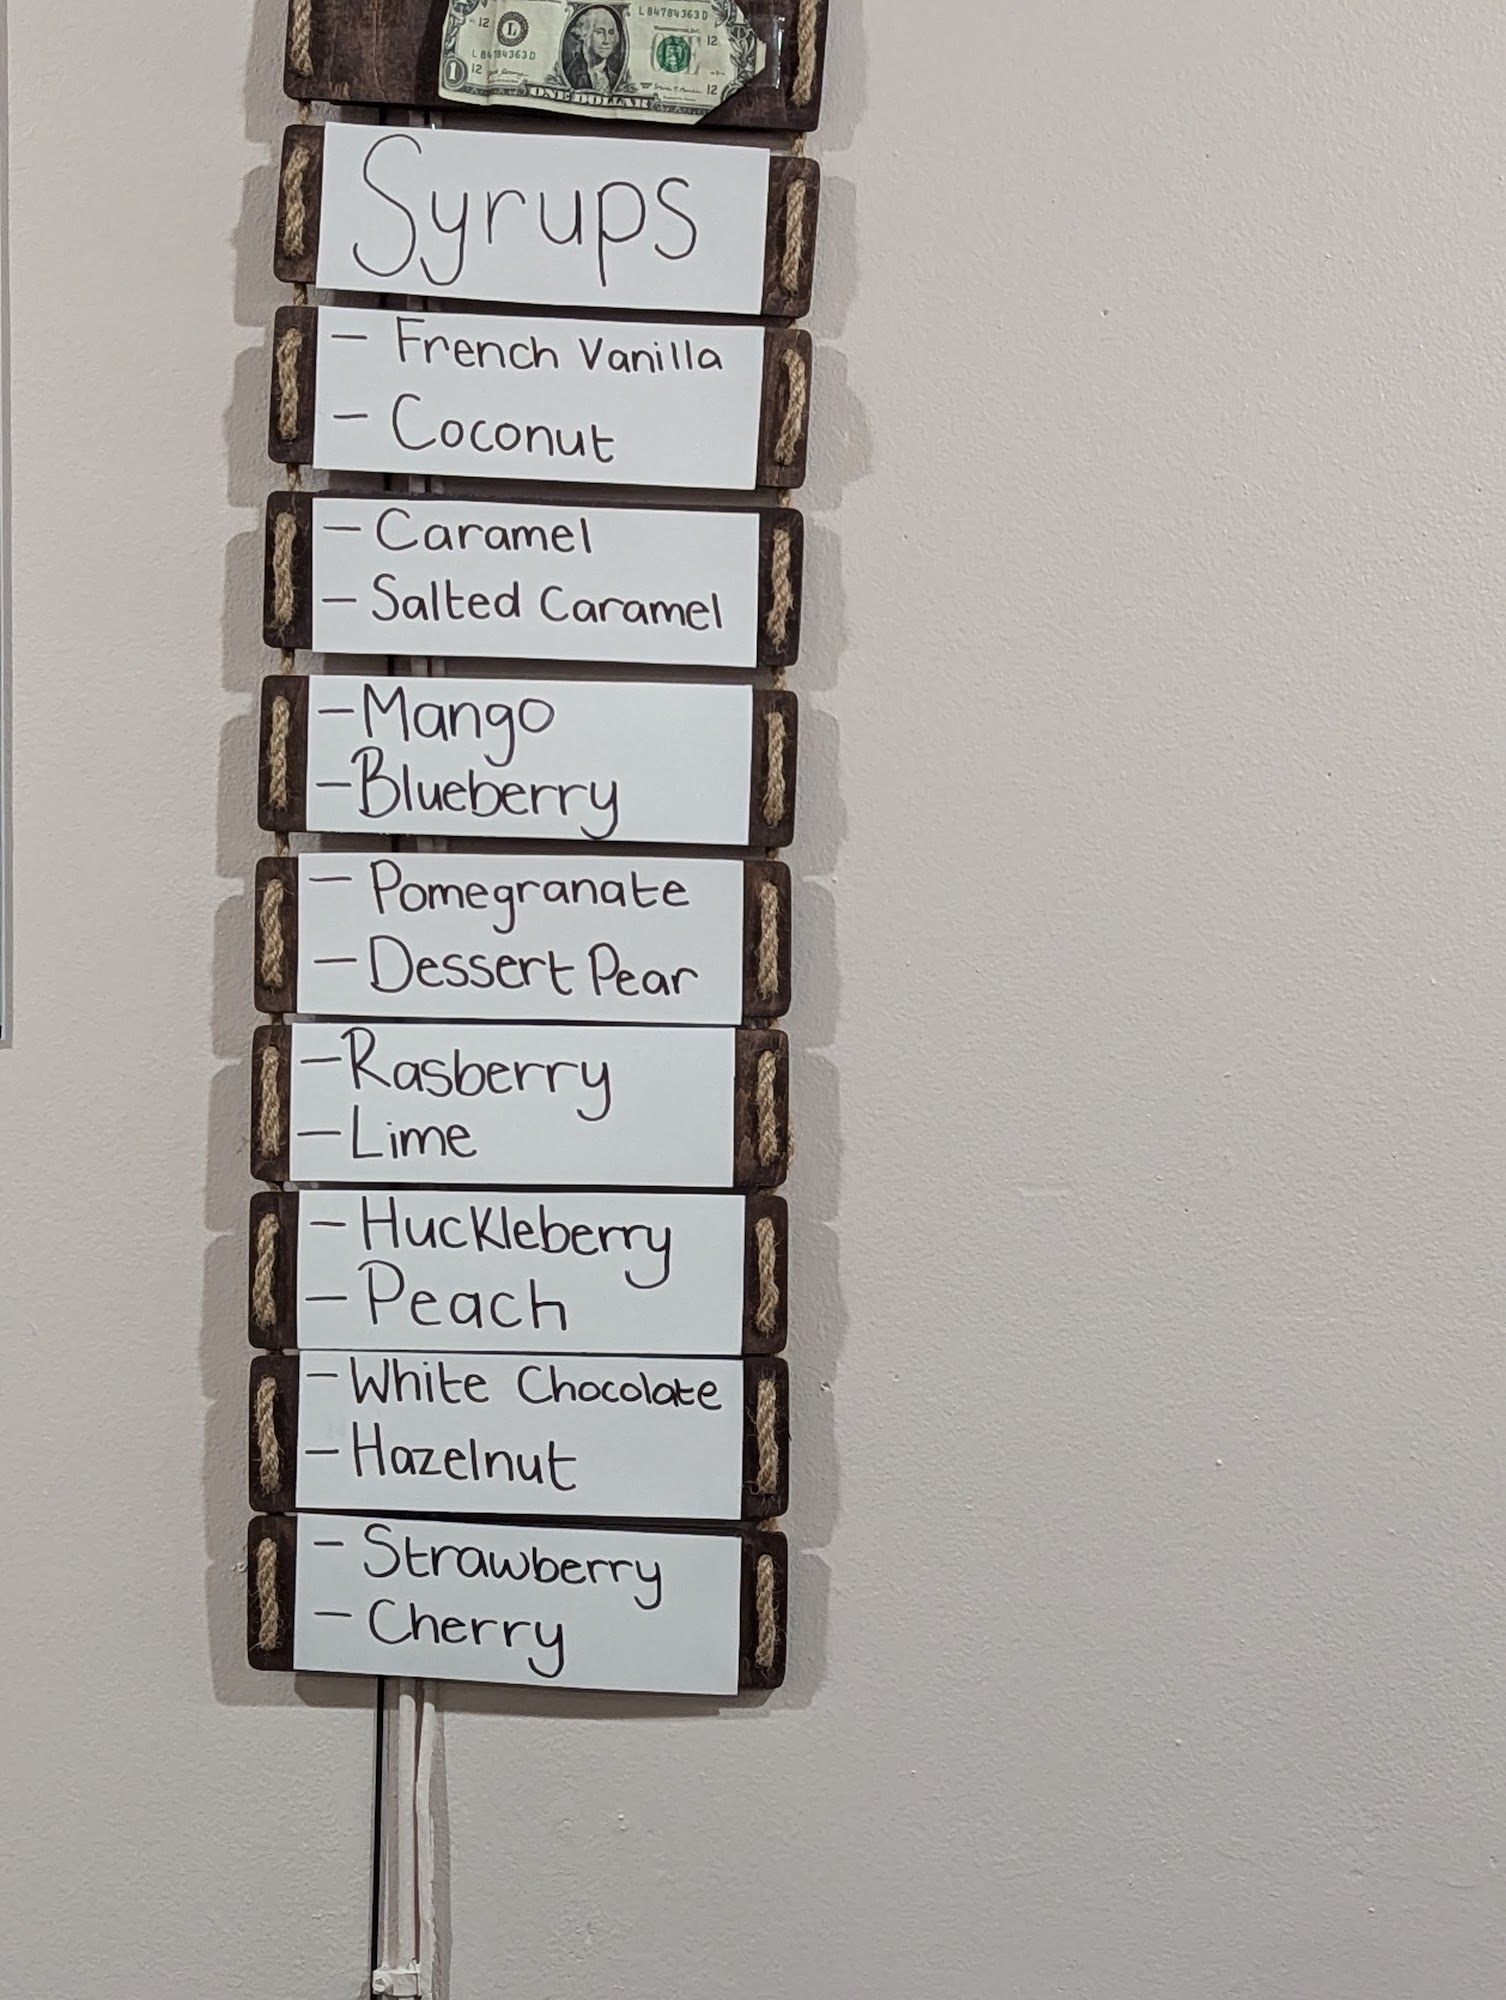 L84784363D
12
L
12
L84784363D
1
12
12
ONE DOLLAR
Syrups
- French Vanilla
- Coconut
- Caramel
- Salted Caramel
- Mango
- Blueberry
- Pomegranate
- Dessert Pear
- Rasberry
- Lime
- Huckleberry
- Peach
- White Chocolate
- Hazelnut
- Strawberry
- Cherry